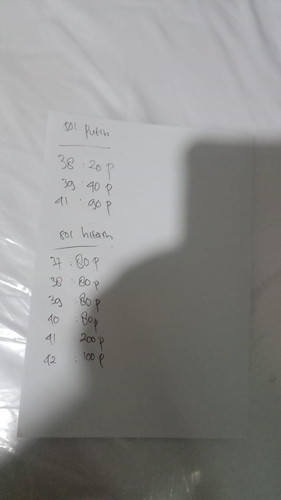 sol putih
38 : 20 p
39 : 40 p
41 : 90 p
sol hitam
37 : 80 p
38 : 80 p
39 : 80 p
40 : 80 p
41 200 p
42 : 100 p